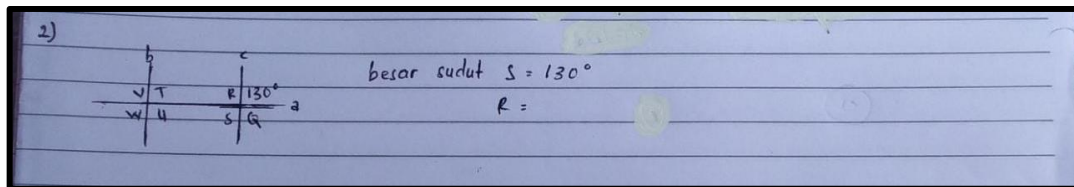 2)
b c
V T R 130°
a
W U S Q
besar sudut S = 130°
R =